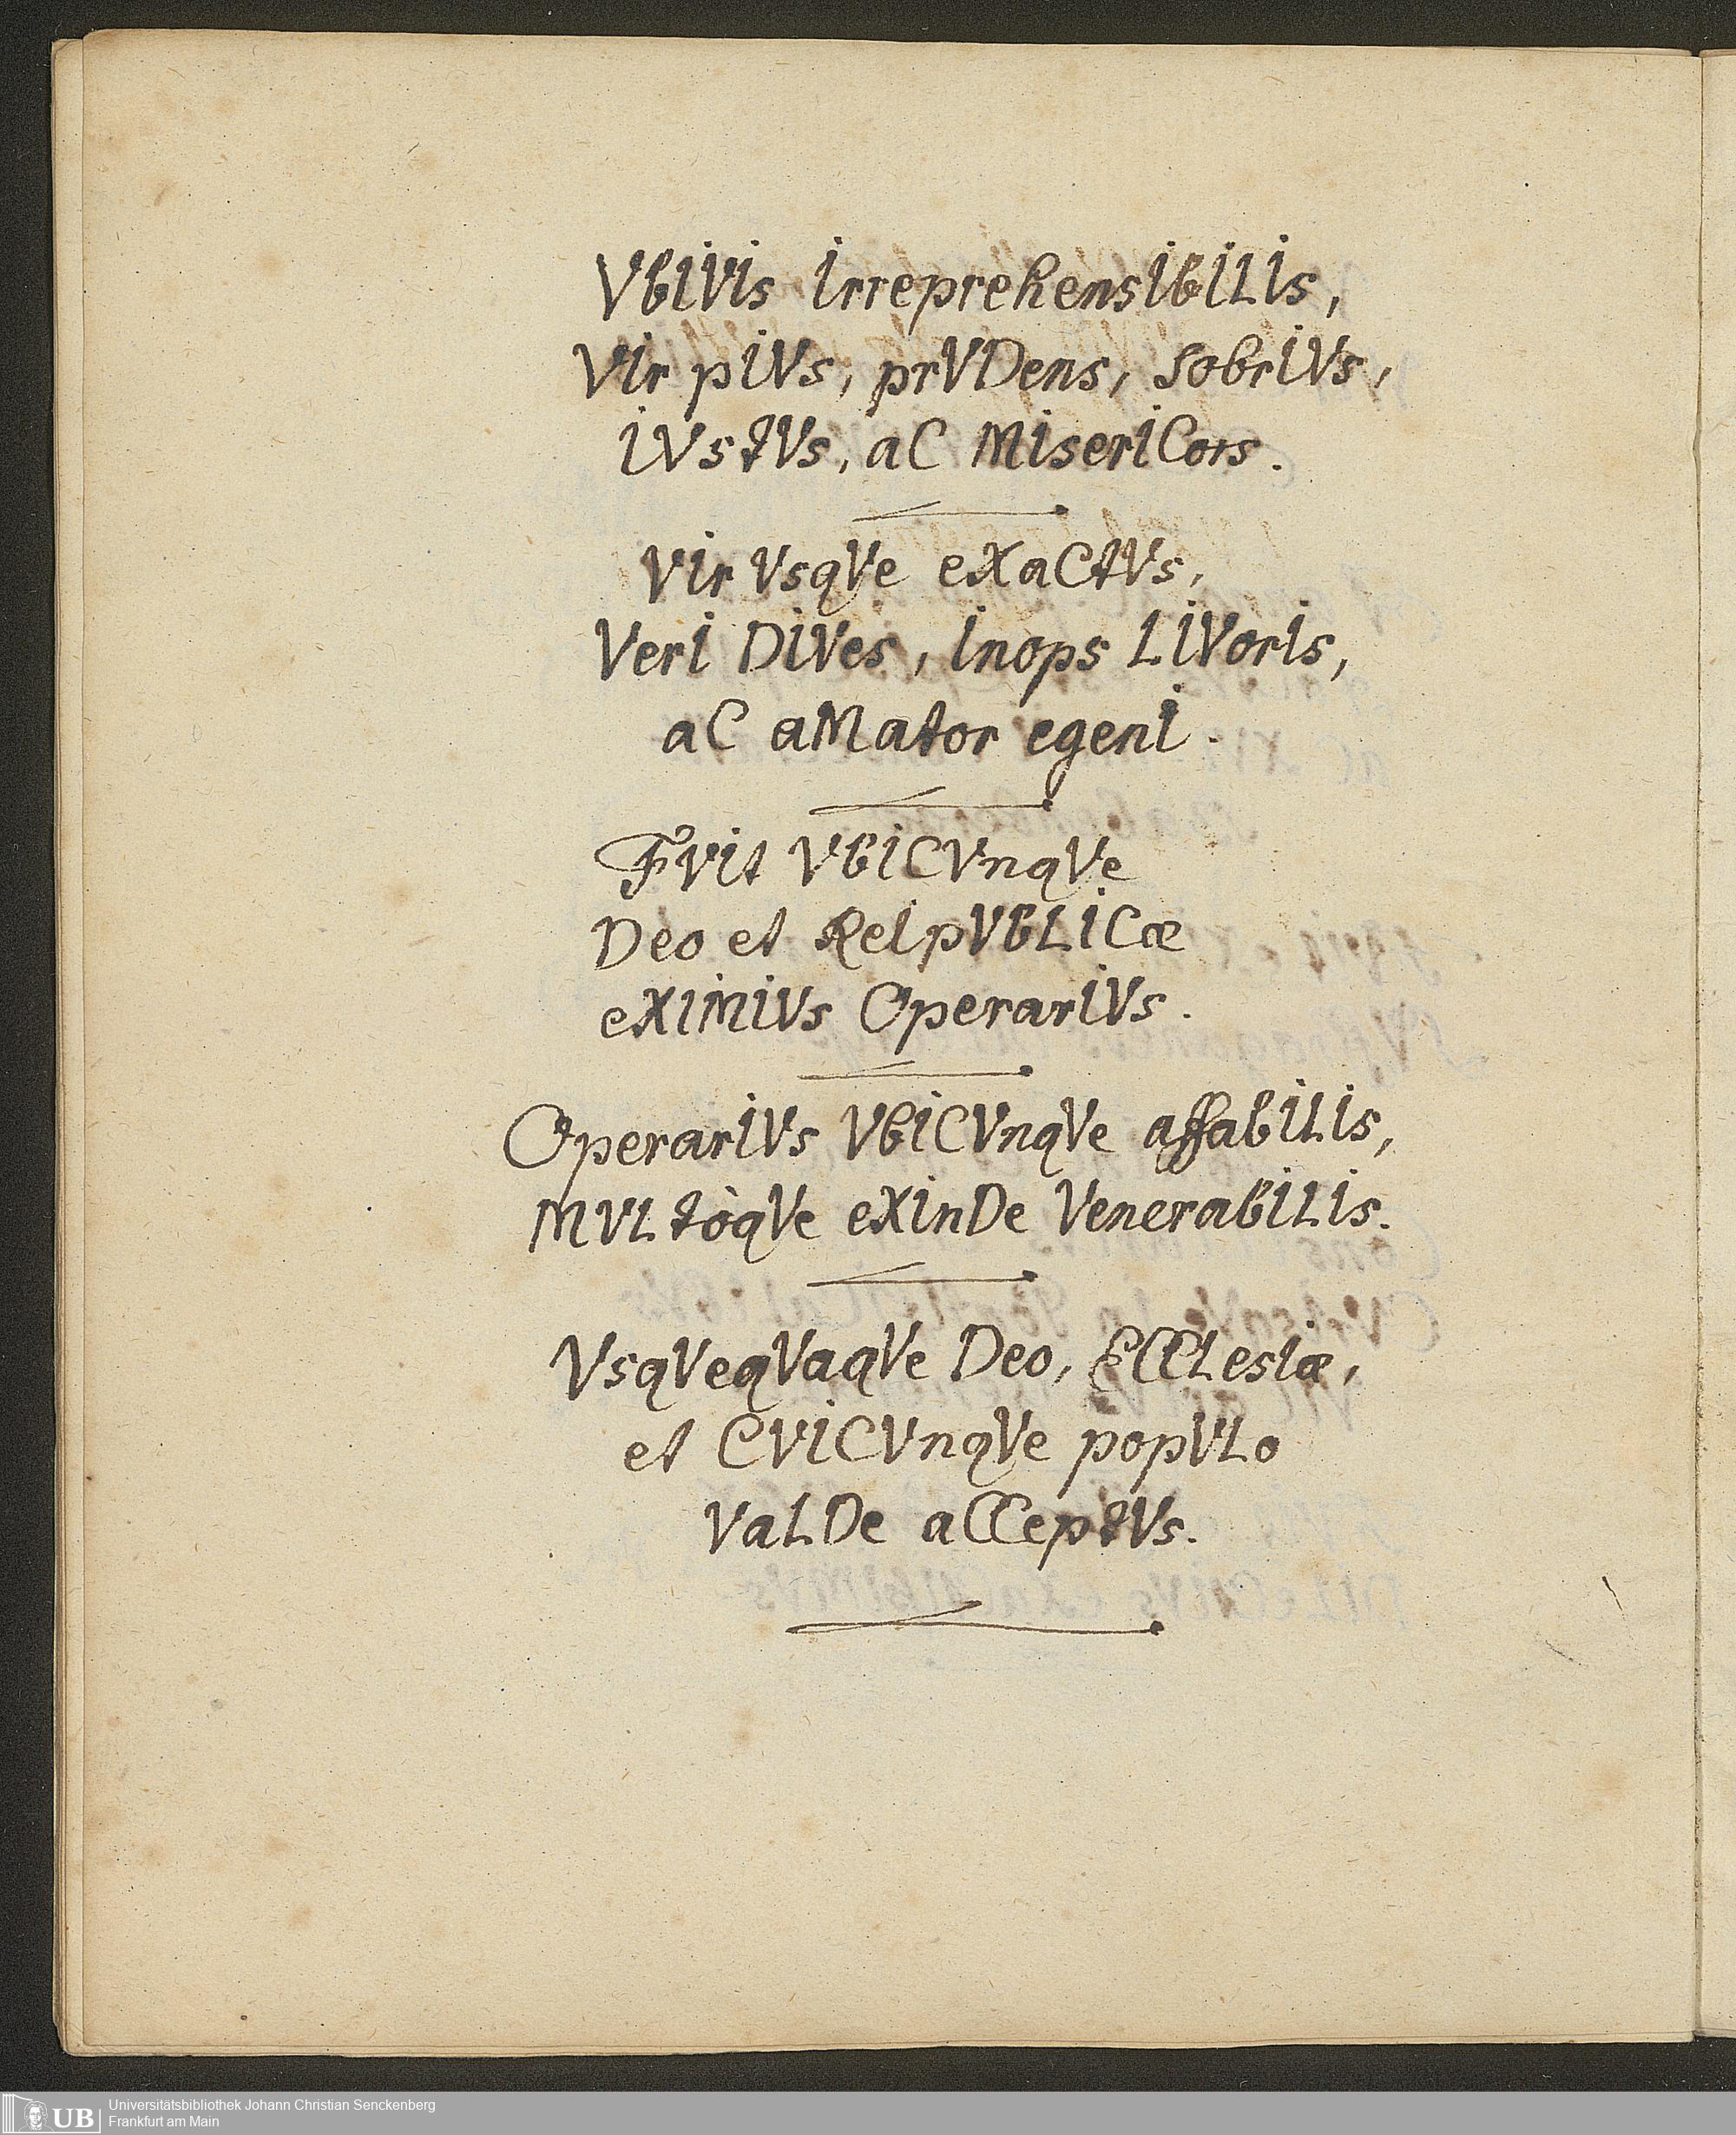 VbIVIs IrreprehensIbILIs,
VIr pIVs, prVDens, sobrIVs,
IVstVs, aC MIserICors.
VIr VsqVe eXaCtVs,
VerI DIVes, Inops LIVorIs,
aC aMator egenI.
FVIt VbICVnqVe
Deo et ReIpVbLICæ
eXIMIVs OperarIVs.
OperarIVs VbICVnqVe affabILIs,
MVLtòqVe eXInDe VenerabILIs.
VsqVeqVaqVe Deo, ECCLesIæ,
et CVICVnqVe popVLo
VaLDe aCCeptVs.
UB
Universitätsbibliothek Johann Christian Senckenberg
Frankfurt am Main